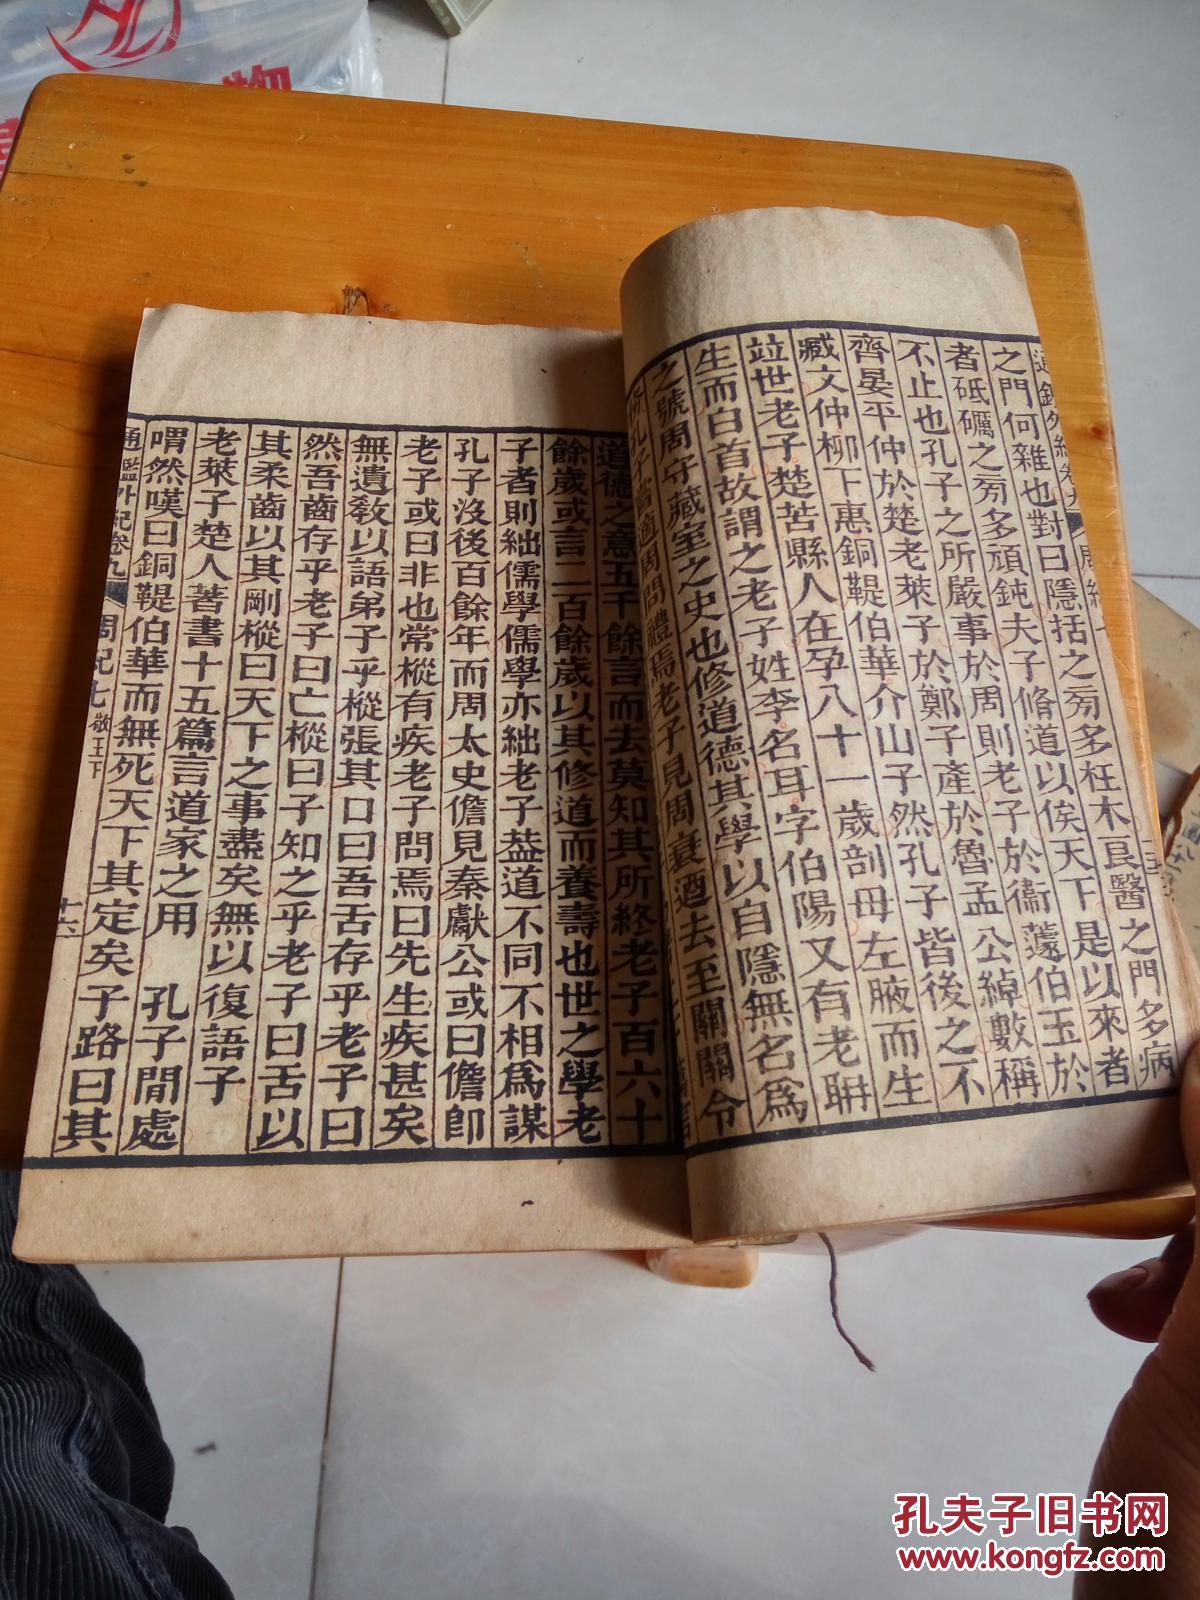 通鑑外紀卷九
周紀七
之門何雜也對曰隱括之旁多枉木良醫之門多病
者砥礪之旁多頑鈍夫子脩道以俟天下是以來者
不止也孔子之所嚴事於周則老子於衞蘧伯玉於
齊晏平仲於楚老萊子於鄭子產於魯孟公綽數稱
臧文仲柳下惠銅鞮伯華介山子然孔子皆後之不
竝世老子楚苦縣人在孕八十一歲剖母左腋而生
生而白首故謂之老子姓李名耳字伯陽又有老耼
之號周守藏室之史也修道德其學以自隱無名爲
務孔子嘗適周問禮焉老子見周衰遒去至關關令
道德之意五千餘言而去莫知其所終老子百六十
餘歲或言二百餘歲以其修道而養壽也世之學老
子者則絀儒學儒學亦絀老子葢道不同不相爲謀
孔子沒後百餘年而周太史儋見秦獻公或曰儋卽
老子或曰非也常樅有疾老子問焉曰先生疾甚矣
無遺敎以語弟子乎樅張其口曰吾舌存乎老子曰
然吾齒存乎老子曰亡樅曰子知之乎老子曰舌以
其柔齒以其剛樅曰天下之事盡矣無以復語子
老萊子楚人著書十五篇言道家之用 孔子閒處
喟然嘆曰銅鞮伯華而無死天下其定矣子路曰其
通鑑外紀卷九 周紀七 敬王下 十六
孔夫子旧书网
www.kongfz.com